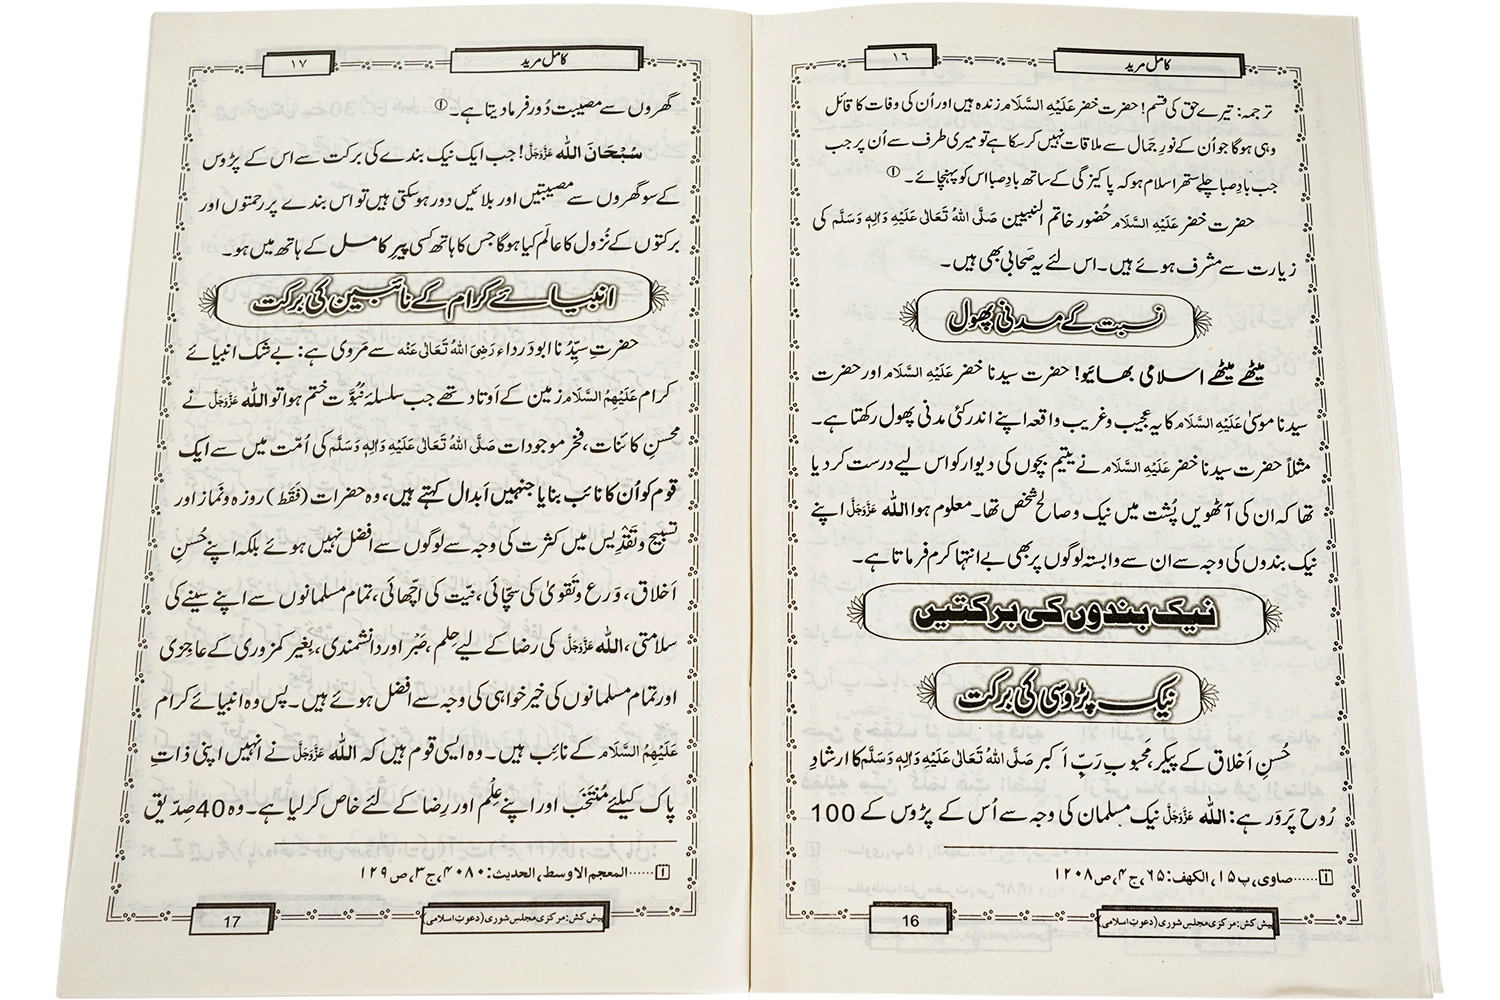 کامل مرید
١٦
ترجمہ: تیرے حق کی قسم! حضرت خضر عَلَیْہِ السَّلَام زندہ ہیں اور اُن کی وفات کا قائل
وہی ہوگا جو اُن کے نورِ جمال سے ملاقات نہیں کرسکا ہے تو میری طرف سے اُن پر جب
جب بادِ صبا چلے ستھرا سلام ہو کہ پاکیزگی کے ساتھ بادِ صبا اس کو پہنچائے۔ ①
حضرت خضر عَلَیْہِ السَّلَام حُضور خاتم النبیین صَلَّی اللہُ تَعَالٰی عَلَیْہِ وَاٰلِہٖ وَسَلَّم کی
زیارت سے مشرف ہوئے ہیں۔ اس لئے یہ صَحابی بھی ہیں۔
نسبت کے مدنی پھول
میٹھے میٹھے اسلامی بھائیو! حضرت سیدنا خضر عَلَیْہِ السَّلَام اور حضرت
سیدنا موسیٰ عَلَیْہِ السَّلَام کا یہ عجیب و غریب واقعہ اپنے اندر کئی مدنی پھول رکھتا ہے۔
مثلاً حضرت سیدنا خضر عَلَیْہِ السَّلَام نے یتیم بچوں کی دیوار کو اس لیے درست کر دیا
تھا کہ ان کی آٹھویں پُشت میں نیک و صالح شخص تھا۔ معلوم ہوا اللہ عَزَّوَجَلَّ اپنے
نیک بندوں کی وجہ سے ان سے وابستہ لوگوں پر بھی بے انتہا کرم فرماتا ہے۔
نیک بندوں کی برکتیں
نیک پڑوسی کی برکت
حُسنِ اَخلاق کے پیکر، محبوبِ رَبِّ اَکبر صَلَّی اللہُ تَعَالٰی عَلَیْہِ وَاٰلِہٖ وَسَلَّم کا ارشادِ
رُوح پَرور ہے: اللہ عَزَّوَجَلَّ نیک مسلمان کی وجہ سے اُس کے پڑوس کے 100
١ ......صاوی، پ ١٥، الکھف: ٦٥، ج ٤، ص ١٢٠٨
پیش کش: مرکزی مجلس شوریٰ (دعوتِ اسلامی)
16
کامل مرید
١٧
گھروں سے مصیبت دُور فرما دیتا ہے۔ ①
سُبْحَانَ اللہ عَزَّوَجَلَّ! جب ایک نیک بندے کی برکت سے اس کے پڑوس
کے سو گھروں سے مصیبتیں اور بلائیں دور ہوسکتی ہیں تو اس بندے پر رحمتوں اور
برکتوں کے نُزول کا عالَم کیا ہوگا جس کا ہاتھ کسی پیرِ کامل کے ہاتھ میں ہو۔
انبیائے کرام کے نائبین کی برکت
حضرتِ سیِّدُنا ابودَرداء رَضِیَ اللہُ تَعَالٰی عَنْہ سے مَروی ہے: بے شک انبیائے
کرام عَلَیْہِمُ السَّلَام زمین کے اَوتاد تھے جب سلسلۂ نُبُوَّت ختم ہوا تو اللہ عَزَّوَجَلَّ نے
محسنِ کائنات، فخرِ موجودات صَلَّی اللہُ تَعَالٰی عَلَیْہِ وَاٰلِہٖ وَسَلَّم کی اُمّت میں سے ایک
قوم کو اُن کا نائب بنایا جنہیں اَبدال کہتے ہیں، وہ حضرات (فَقَط) روزہ و نَماز اور
تسبیح و تَقْدِیس میں کثرت کی وجہ سے لوگوں سے افضل نہیں ہوئے بلکہ اپنے حُسنِ
اَخلاق، وَرَع و تَقویٰ کی سچّائی، نیّت کی اچّھائی، تمام مسلمانوں سے اپنے سینے کی
سلامتی، اللہ عَزَّوَجَلَّ کی رضا کے لیے حِلم، صَبْر اور دانشمندی، بِغیر کمزوری کے عاجِزی
اور تمام مسلمانوں کی خیر خواہی کی وجہ سے افضل ہوئے ہیں۔ پس وہ انبیائے کرام
عَلَیْہِمُ السَّلَام کے نائب ہیں۔ وہ ایسی قوم ہیں کہ اللہ عَزَّوَجَلَّ نے انہیں اپنی ذاتِ
پاک کیلئے مُنْتَخَب اور اپنے عِلْم اور رِضا کے لئے خاص کر لیا ہے۔ وہ 40 صِدّیق
١ ......المعجم الاوسط، الحدیث: ٤٠٨٠، ج ٣، ص ١٢٩
پیش کش: مرکزی مجلس شوریٰ (دعوتِ اسلامی)
17